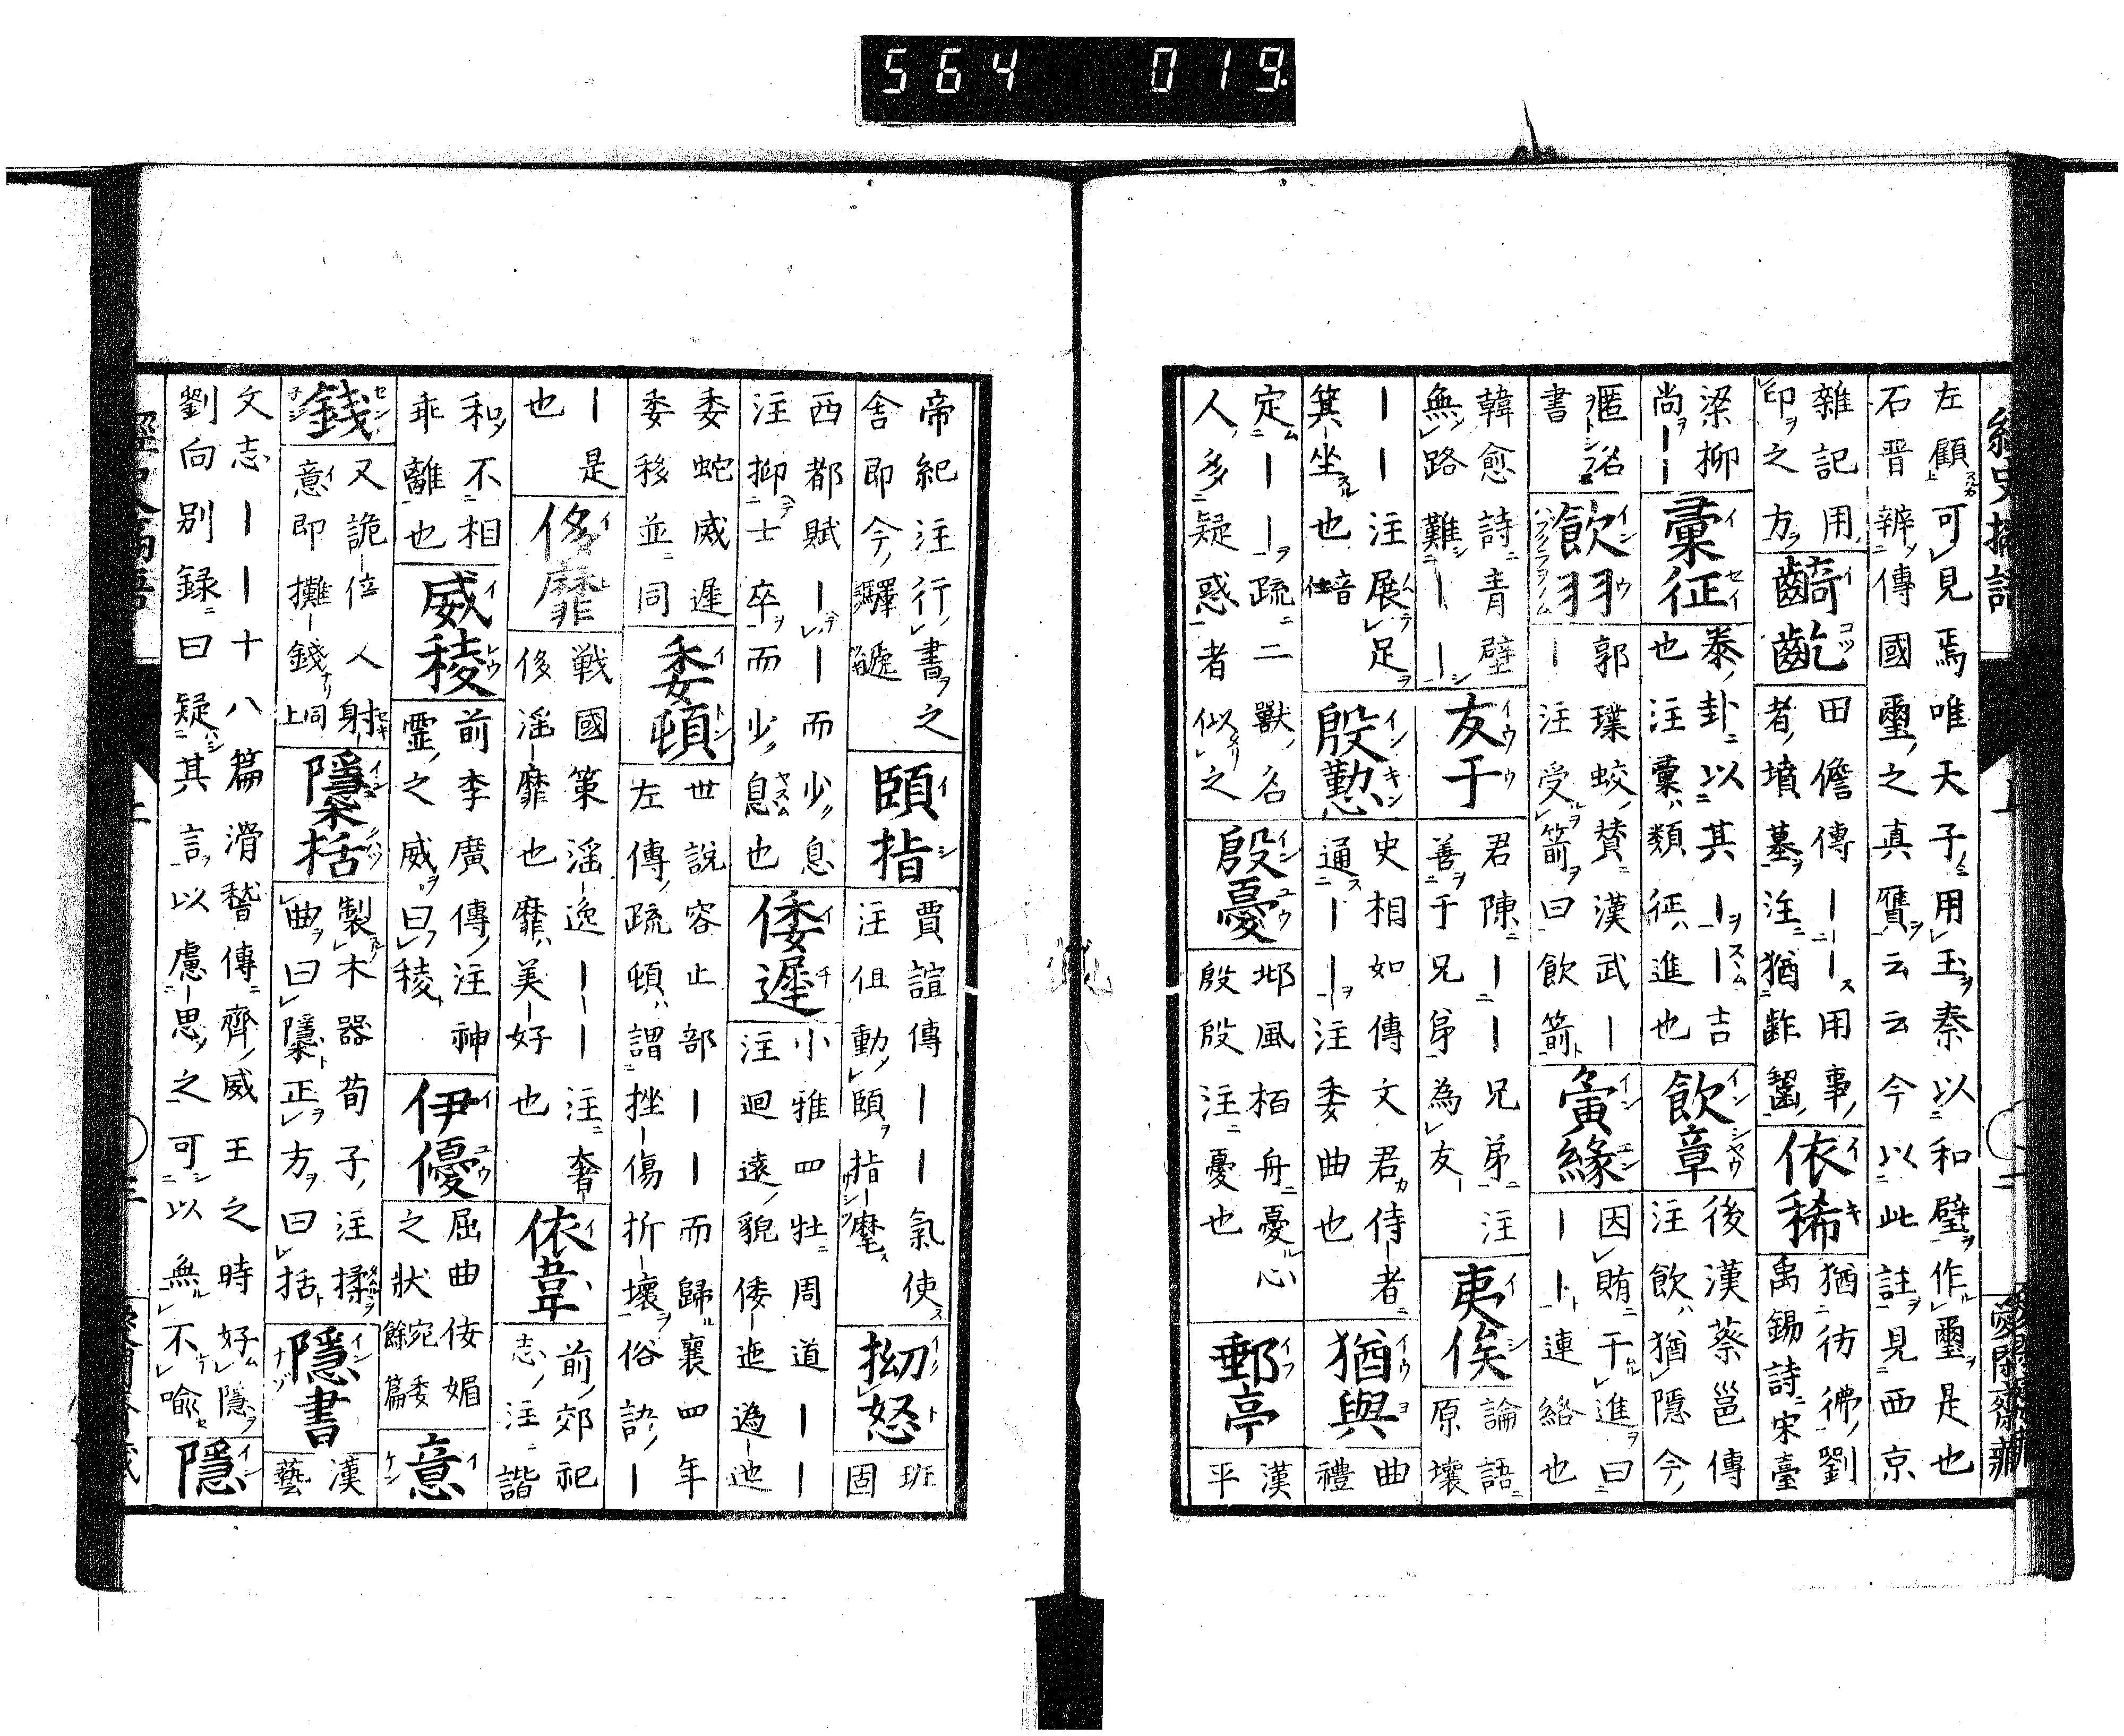 564 019
左顧可見焉唯天子用玉秦以和璧作璽是也
石晋辨傳國璽之真贋云云今以此註見西京
雜記用
印之方
齮齕
田儋傳｜｜用事
者墳墓注猶齚齧
依稀
猶彷彿劉
禹錫詩宋臺
梁柳
尚｜｜
彙征
泰卦以其｜｜吉
也注彙類征進也
飲章
後漢蔡邕傳
注飲猶隱今
匿名
書
飲羽
郭璞蛟賛漢武｜
｜注受箭曰飲箭
夤緣
因賄干進曰
｜｜連絡也
韓愈詩青壁
無路難｜｜
友于
君陳｜｜兄弟注
善于兄弟為友
夷俟
論語
原壤
｜｜注展足
箕坐也
殷懃
史相如傳文君侍者
通｜｜注委曲也
猶與
曲
禮
定｜｜疏二獸名
人多疑惑者似之
殷憂
邶風栢舟憂心
殷殷注憂也
郵亭
漢
平
帝紀注行書之
舎即今驛遞
頤指
賈誼傳｜｜氣使
注但動頤指麾
拗怒
班
固
西都賦｜｜而少息
注抑士卒而少息也
倭遲
小雅四牡周道｜｜
注迴遠貌倭迤逶迆
委蛇威遲
委移並同
委頓
世説容止部｜｜而歸襄四年
左傳疏頓謂挫傷折壞俗語｜
｜是
也
侈靡
戦國策滛逸｜｜注奢
侈滛靡也靡美好也
依韋
前郊祀
志注諧
和不相
乖離也
威稜
前李廣傳注神
霊之威曰稜
伊優
屈曲侫媚
之状
意
錢
又詭倍人射
意即攤錢同上
隱栝
製木器荀子注揉
曲曰隱正方曰括
隱書
漢
藝
文志｜｜十八篇滑稽傳齊威王之時好隱
劉向別録曰疑其言以慮思之可以無不喩
隱